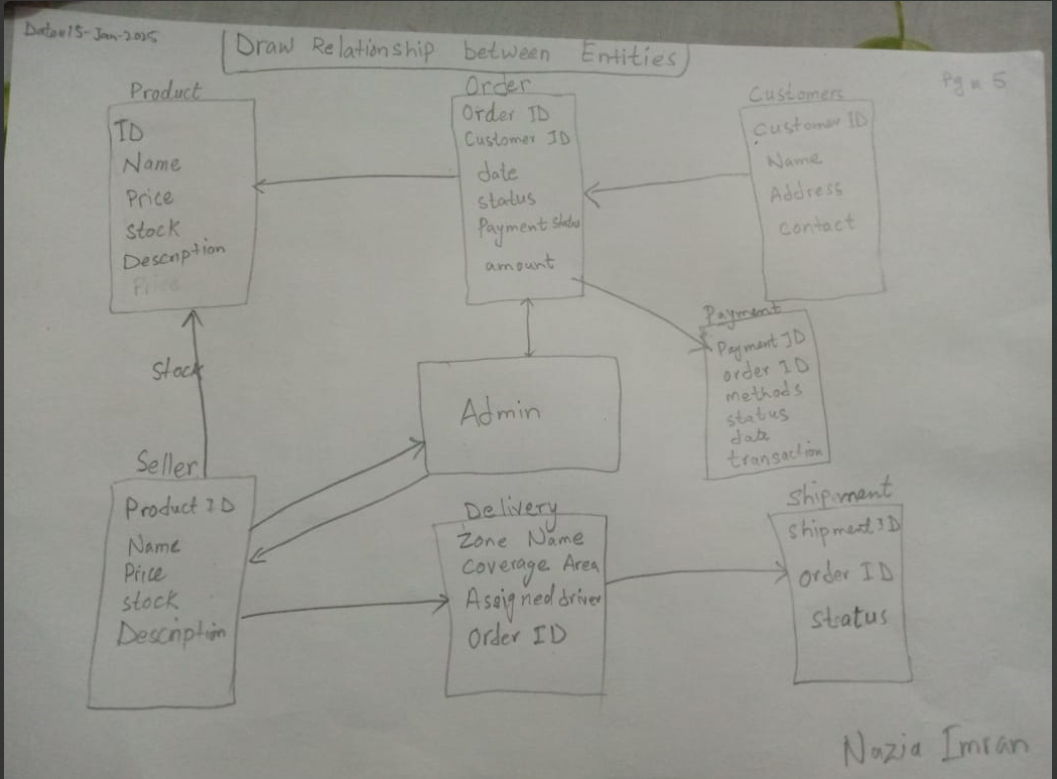 Date=15-Jan-2025
Draw Relationship between Entities
Pg = 5
Product
ID
Name
Price
Stock
Description
Price
Order
Order ID
Customer ID
date
status
Payment status
amount
Customers
Customer ID
Name
Address
contact
Payment
Payment ID
order ID
methods
status
date
transaction
Stock
Admin
Seller
Product ID
Name
Price
stock
Description
Delivery
Zone Name
Coverage Area
Assigned driver
Order ID
Shipment
shipment ID
order ID
status
Nazia Imran